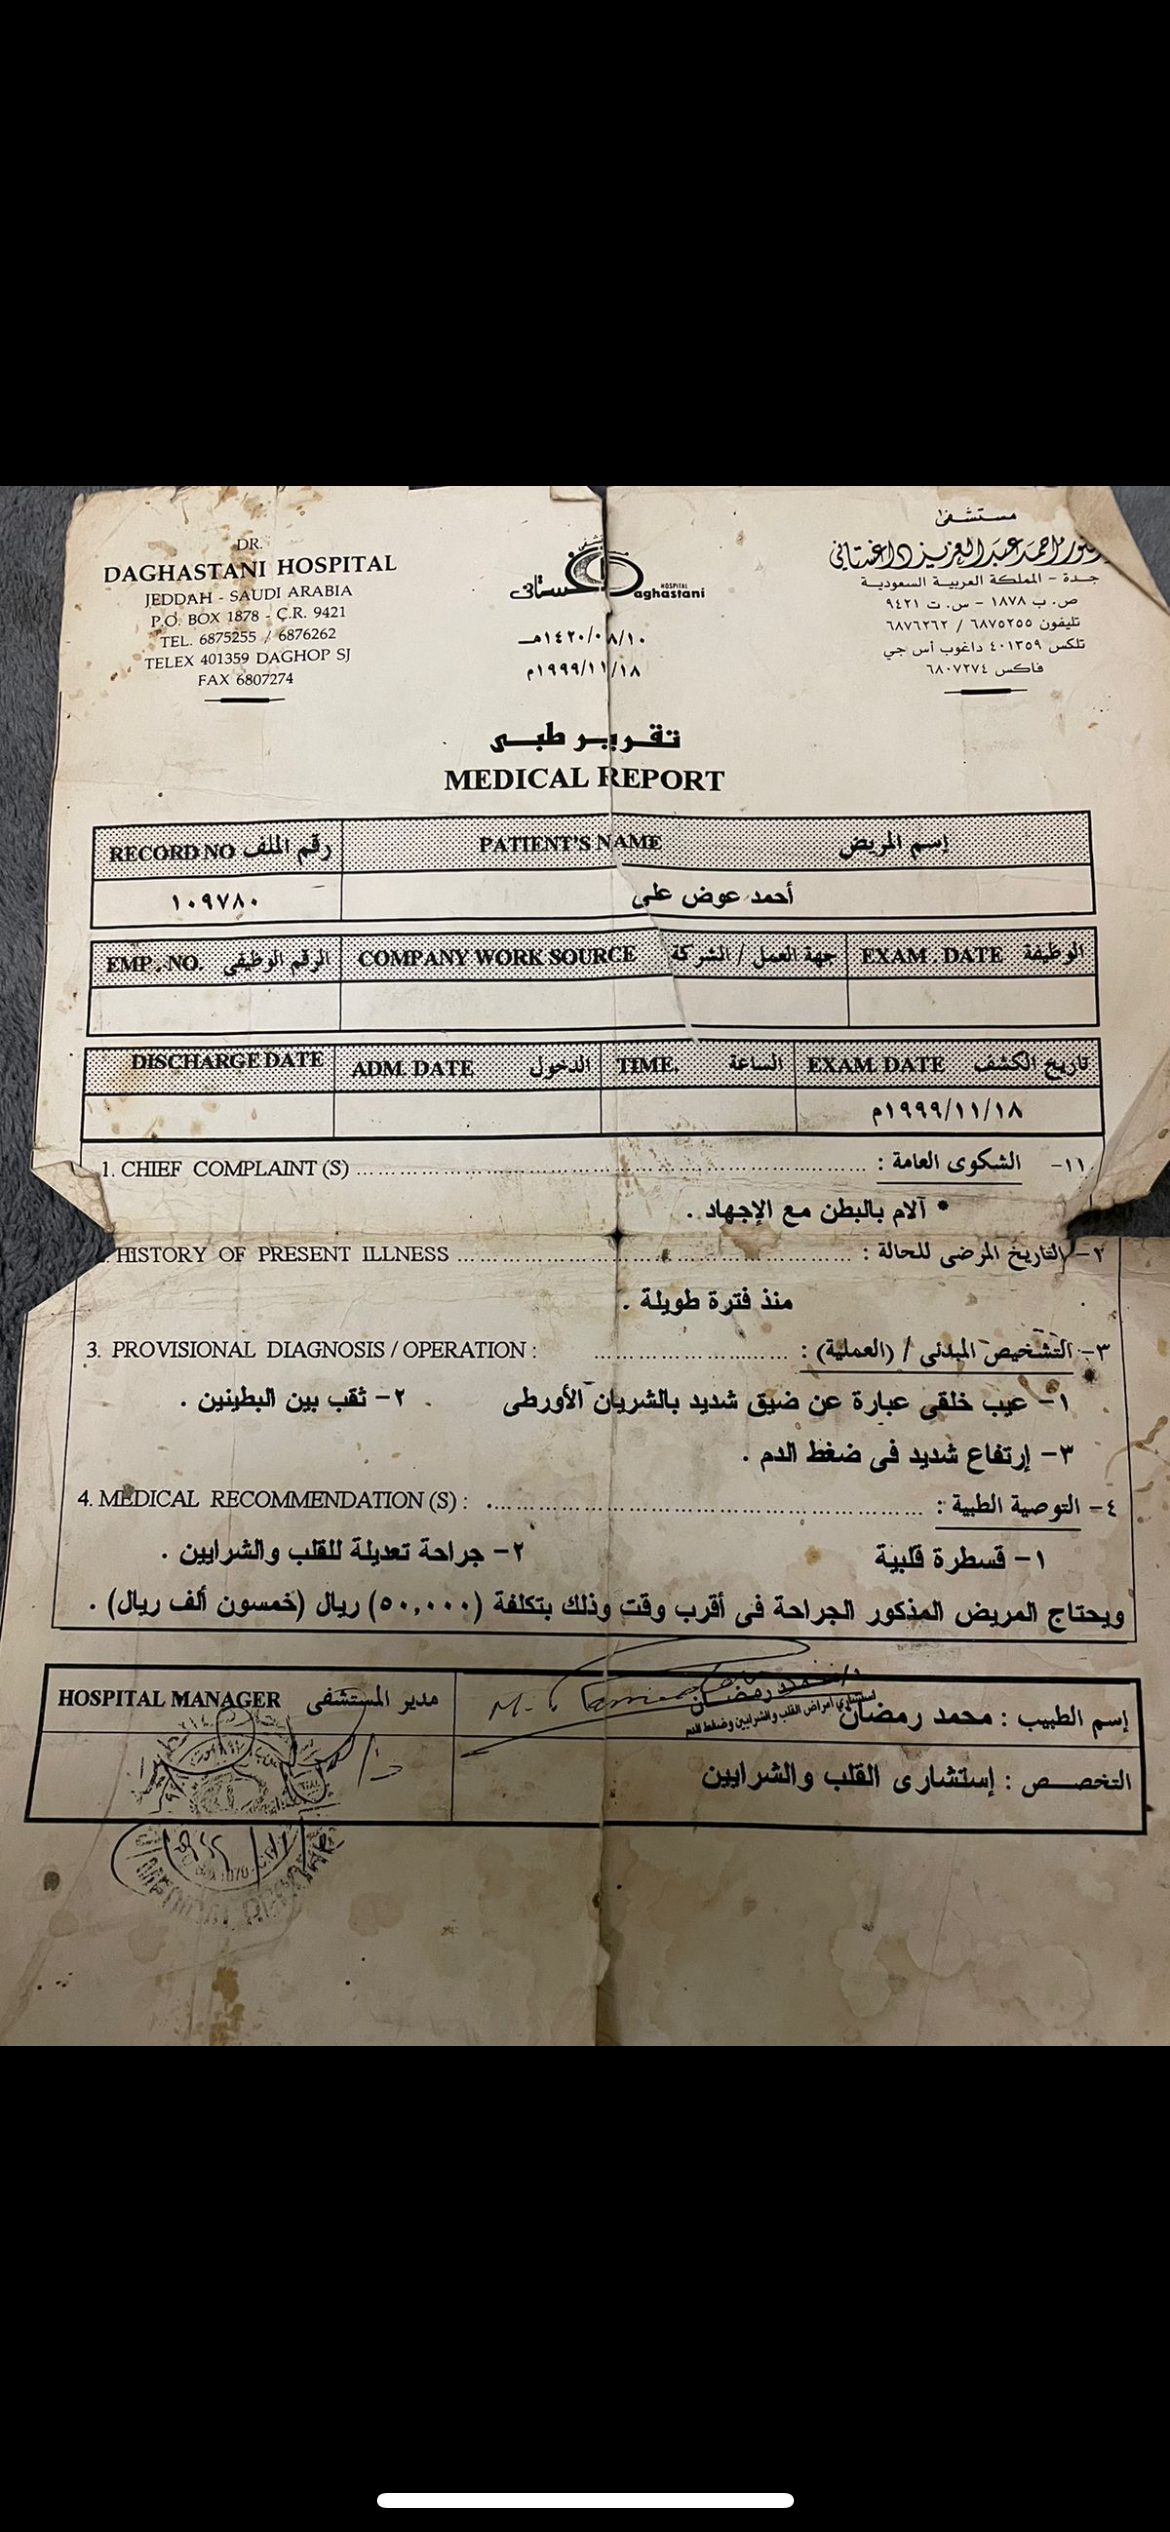 DR.
DAGHASTANI HOSPITAL
JEDDAH - SAUDI ARABIA
P.O. BOX 1878 - C.R. 9421
TEL. 6875255 / 6876262
TELEX 401359 DAGHOP SJ
FAX 6807274
aghastani HOSPITAL
١٤٢٠/٠٨/١٠هـ
١٩٩٩/١١/١٨م
مستشفى
احمد عبد العزيز داغستانى
جدة - المملكة العربية السعودية
ص. ب ١٨٧٨ - س. ت ٩٤٢١
تليفون ٦٨٧٥٢٥٥ / ٦٨٧٦٢٦٢
تلكس ٤٠١٣٥٩ داغوب أس جي
فاكس ٦٨٠٧٢٧٤
تقرير طبى
MEDICAL REPORT
RECORD NO رقم الملف PATIENT'S NAME إسم المريض
١٠٩٧٨٠ أحمد عوض على
EMP. NO. الرقم الوظيفى COMPANY WORK SOURCE جهة العمل / الشركة EXAM. DATE الوظيفة
DISCHARGE DATE ADM. DATE الدخول TIME. الساعة EXAM. DATE تاريخ الكشف
١٩٩٩/١١/١٨م
1. CHIEF COMPLAINT (S) ........ الشكوى العامة : ١١-
* آلام بالبطن مع الإجهاد .
HISTORY OF PRESENT ILLNESS ........ ٢- التاريخ المرضى للحالة :
منذ فترة طويلة .
3. PROVISIONAL DIAGNOSIS / OPERATION : ........ ٣- التشخيص المبدئى / (العملية) :
١- عيب خلقى عبارة عن ضيق شديد بالشريان الأورطى . ٢- ثقب بين البطينين .
٣- إرتفاع شديد فى ضغط الدم .
4. MEDICAL RECOMMENDATION (S) : ........ ٤- التوصية الطبية :
١- قسطرة قلبية ٢- جراحة تعديلة للقلب والشرايين .
ويحتاج المريض المذكور الجراحة فى أقرب وقت وذلك بتكلفة (٥٠,٠٠٠) ريال (خمسون ألف ريال) .
HOSPITAL MANAGER مدير المستشفى
إسم الطبيب : محمد رمضان
محمد رمضان
إستشاري أمراض القلب والشرايين وضغط الدم
التخصص : إستشارى القلب والشرايين